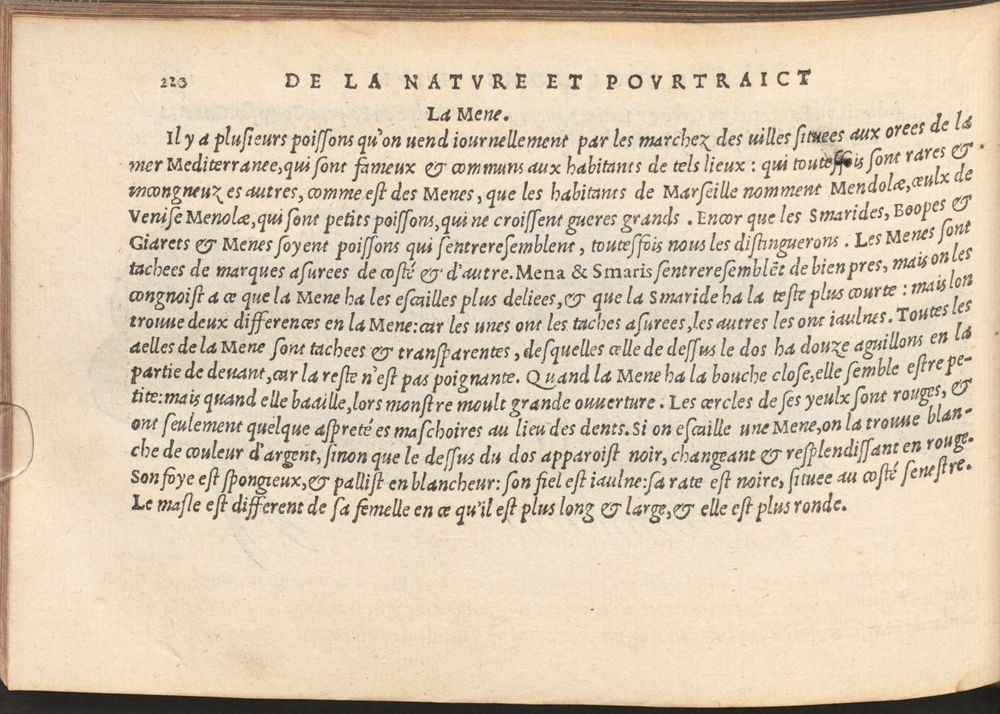 220 DE LA NATVRE ET POVRTRAICT
La Mene.
Il y a plusieurs poissons qu'on uend iournellement par les marchez des uilles situees aux orees de la
mer Mediterranee, qui sont fameux & communs aux habitants de tels lieux : qui toutesfois sont rares &
incongneuz es autres, comme est des Menes, que les habitants de Marseille nomment Mendolæ, ceulx de
Venise Menolæ, qui sont petits poissons, qui ne croissent gueres grands . Encor que les Smarides, Boopes &
Giarets & Menes soyent poissons qui sentreresemblent, toutesfois nous les distinguerons . Les Menes sont
tachees de marques asurees de costé & d'autre. Mena & Smaris sentreresemblẽt de bien pres, mais on les
congnoist a ce que la Mene ha les escailles plus deliees, & que la Smaride ha la teste plus courte : mais lon
trouue deux differences en la Mene: car les unes ont les taches asurees, les autres les ont iaulnes. Toutes les
aelles de la Mene sont tachees & transparentes, desquelles celle de dessus le dos ha douze aguillons en la
partie de deuant, car la reste n'est pas poignante. Quand la Mene ha la bouche close, elle semble estre pe-
tite: mais quand elle baaille, lors monstre moult grande ouuerture . Les cercles de ses yeulx sont rouges, &
ont seulement quelque aspreté es maschoires au lieu des dents. Si on escaille une Mene, on la trouue blan-
che de couleur d'argent, sinon que le dessus du dos apparoist noir, changeant & resplendissant en rouge.
Son foye est spongieux, & pallist en blancheur: son fiel est iaulne: sa rate est noire, situee au costé senestre.
Le masle est different de sa femelle en ce qu'il est plus long & large, & elle est plus ronde.